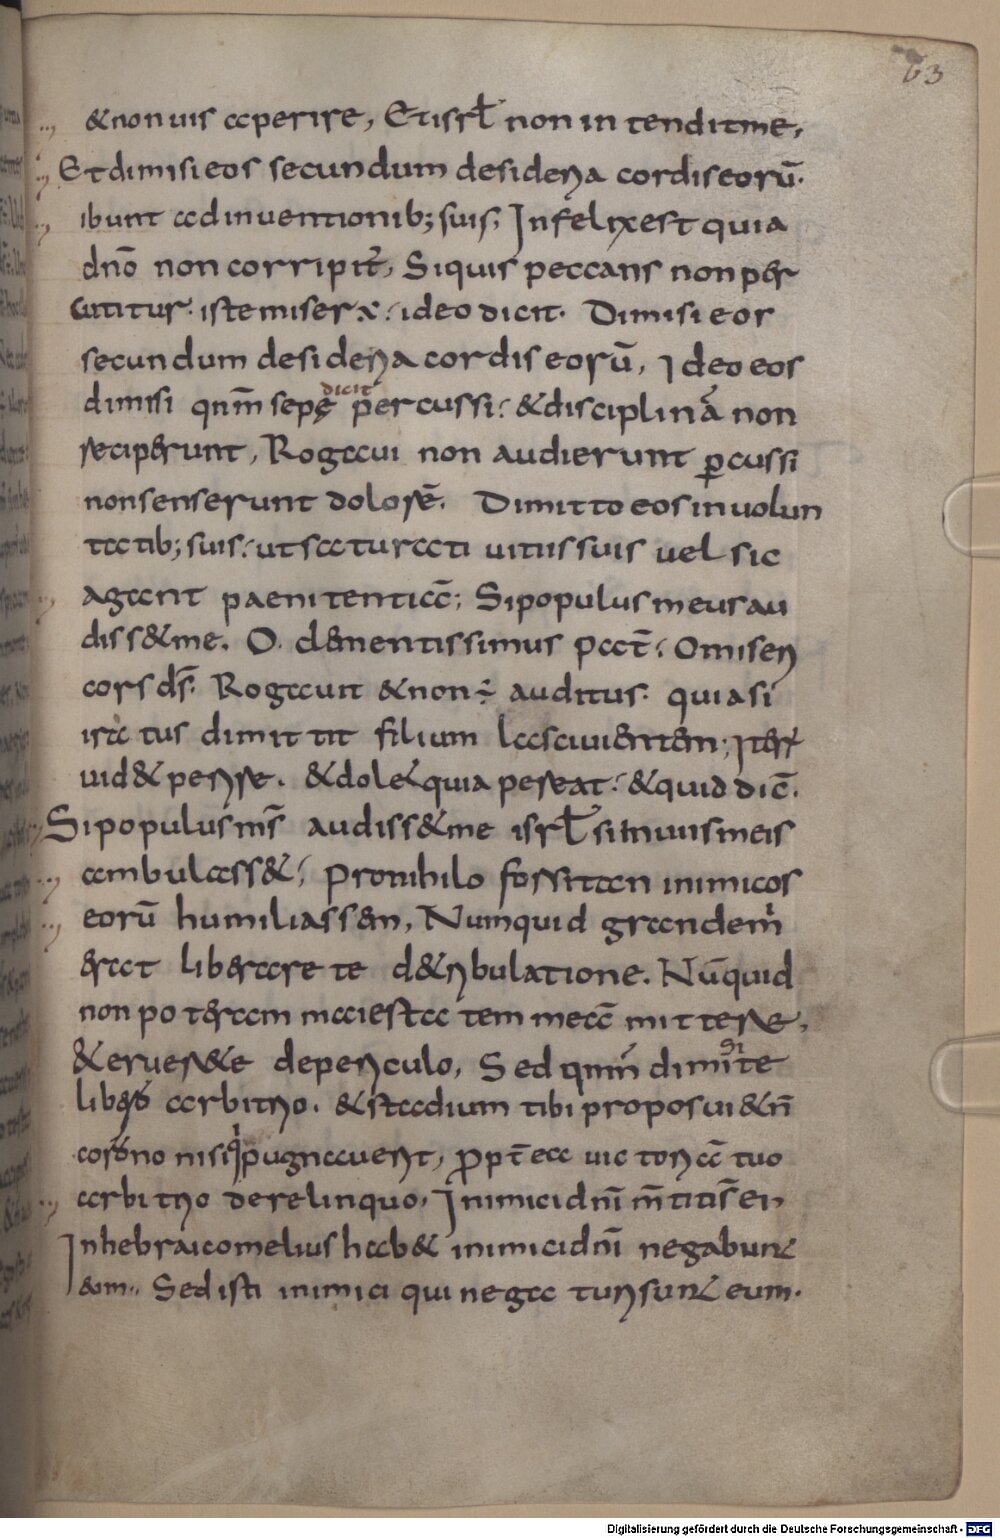 63
& non uis aperire, Et isrl̄ non intendit me,
Et dimisi eos secundum desideria cordis eorū.
ibunt ad inuentionib; suis; Infelix est quia
dn̄o non corripit̄, Siquis peccans non per
cutitur iste miser ē: ideo dicit. Dimisi eos
secundum desideria cordis eorū, Ideo eos
dimisi qn̄m sepę dicit percussi: & disciplinā non
reciperunt, Rogaui non audierunt ꝑcussi
non senserunt dolorē. Dimitto eos in uolun
tatib; suis: ut saturati uitiis suis uel sic
agant paenitentiā; Si populus meus au
diss& me. O clementissimus pat̄. O miseri
cors dś. Rogauit & non ÷ auditus: quia si
iratus dimittit filium lasciuientem; Iter̄
uid& perire. & dol& quia pereat: & quid dic̄.
Si populus ms̄ audiss& me isrl̄ si in uiis meis
ambulass&; Pro nihilo forsitan inimicos
eorū humiliassem, Numquid grandem
erat liberare te de tribulatione. Nūquid
non poteram maiestatem meā mittere,
& eruere te de periculo, Sed qn̄m dimisi te
libero arbitrio. & stadium tibi proposui & n̄
corono nisi qui pugnauerit, ꝓpt̄ea uictoriā tuo
arbitrio derelinquo, Inimici dn̄i m̄titi s̄ ei
In hebraico melius hab& inimici dn̄i negabunt
eum.. Sed isti inimici qui negaturi sunt eum.
Digitalisierung gefördert durch die Deutsche Forschungsgemeinschaft - DFG